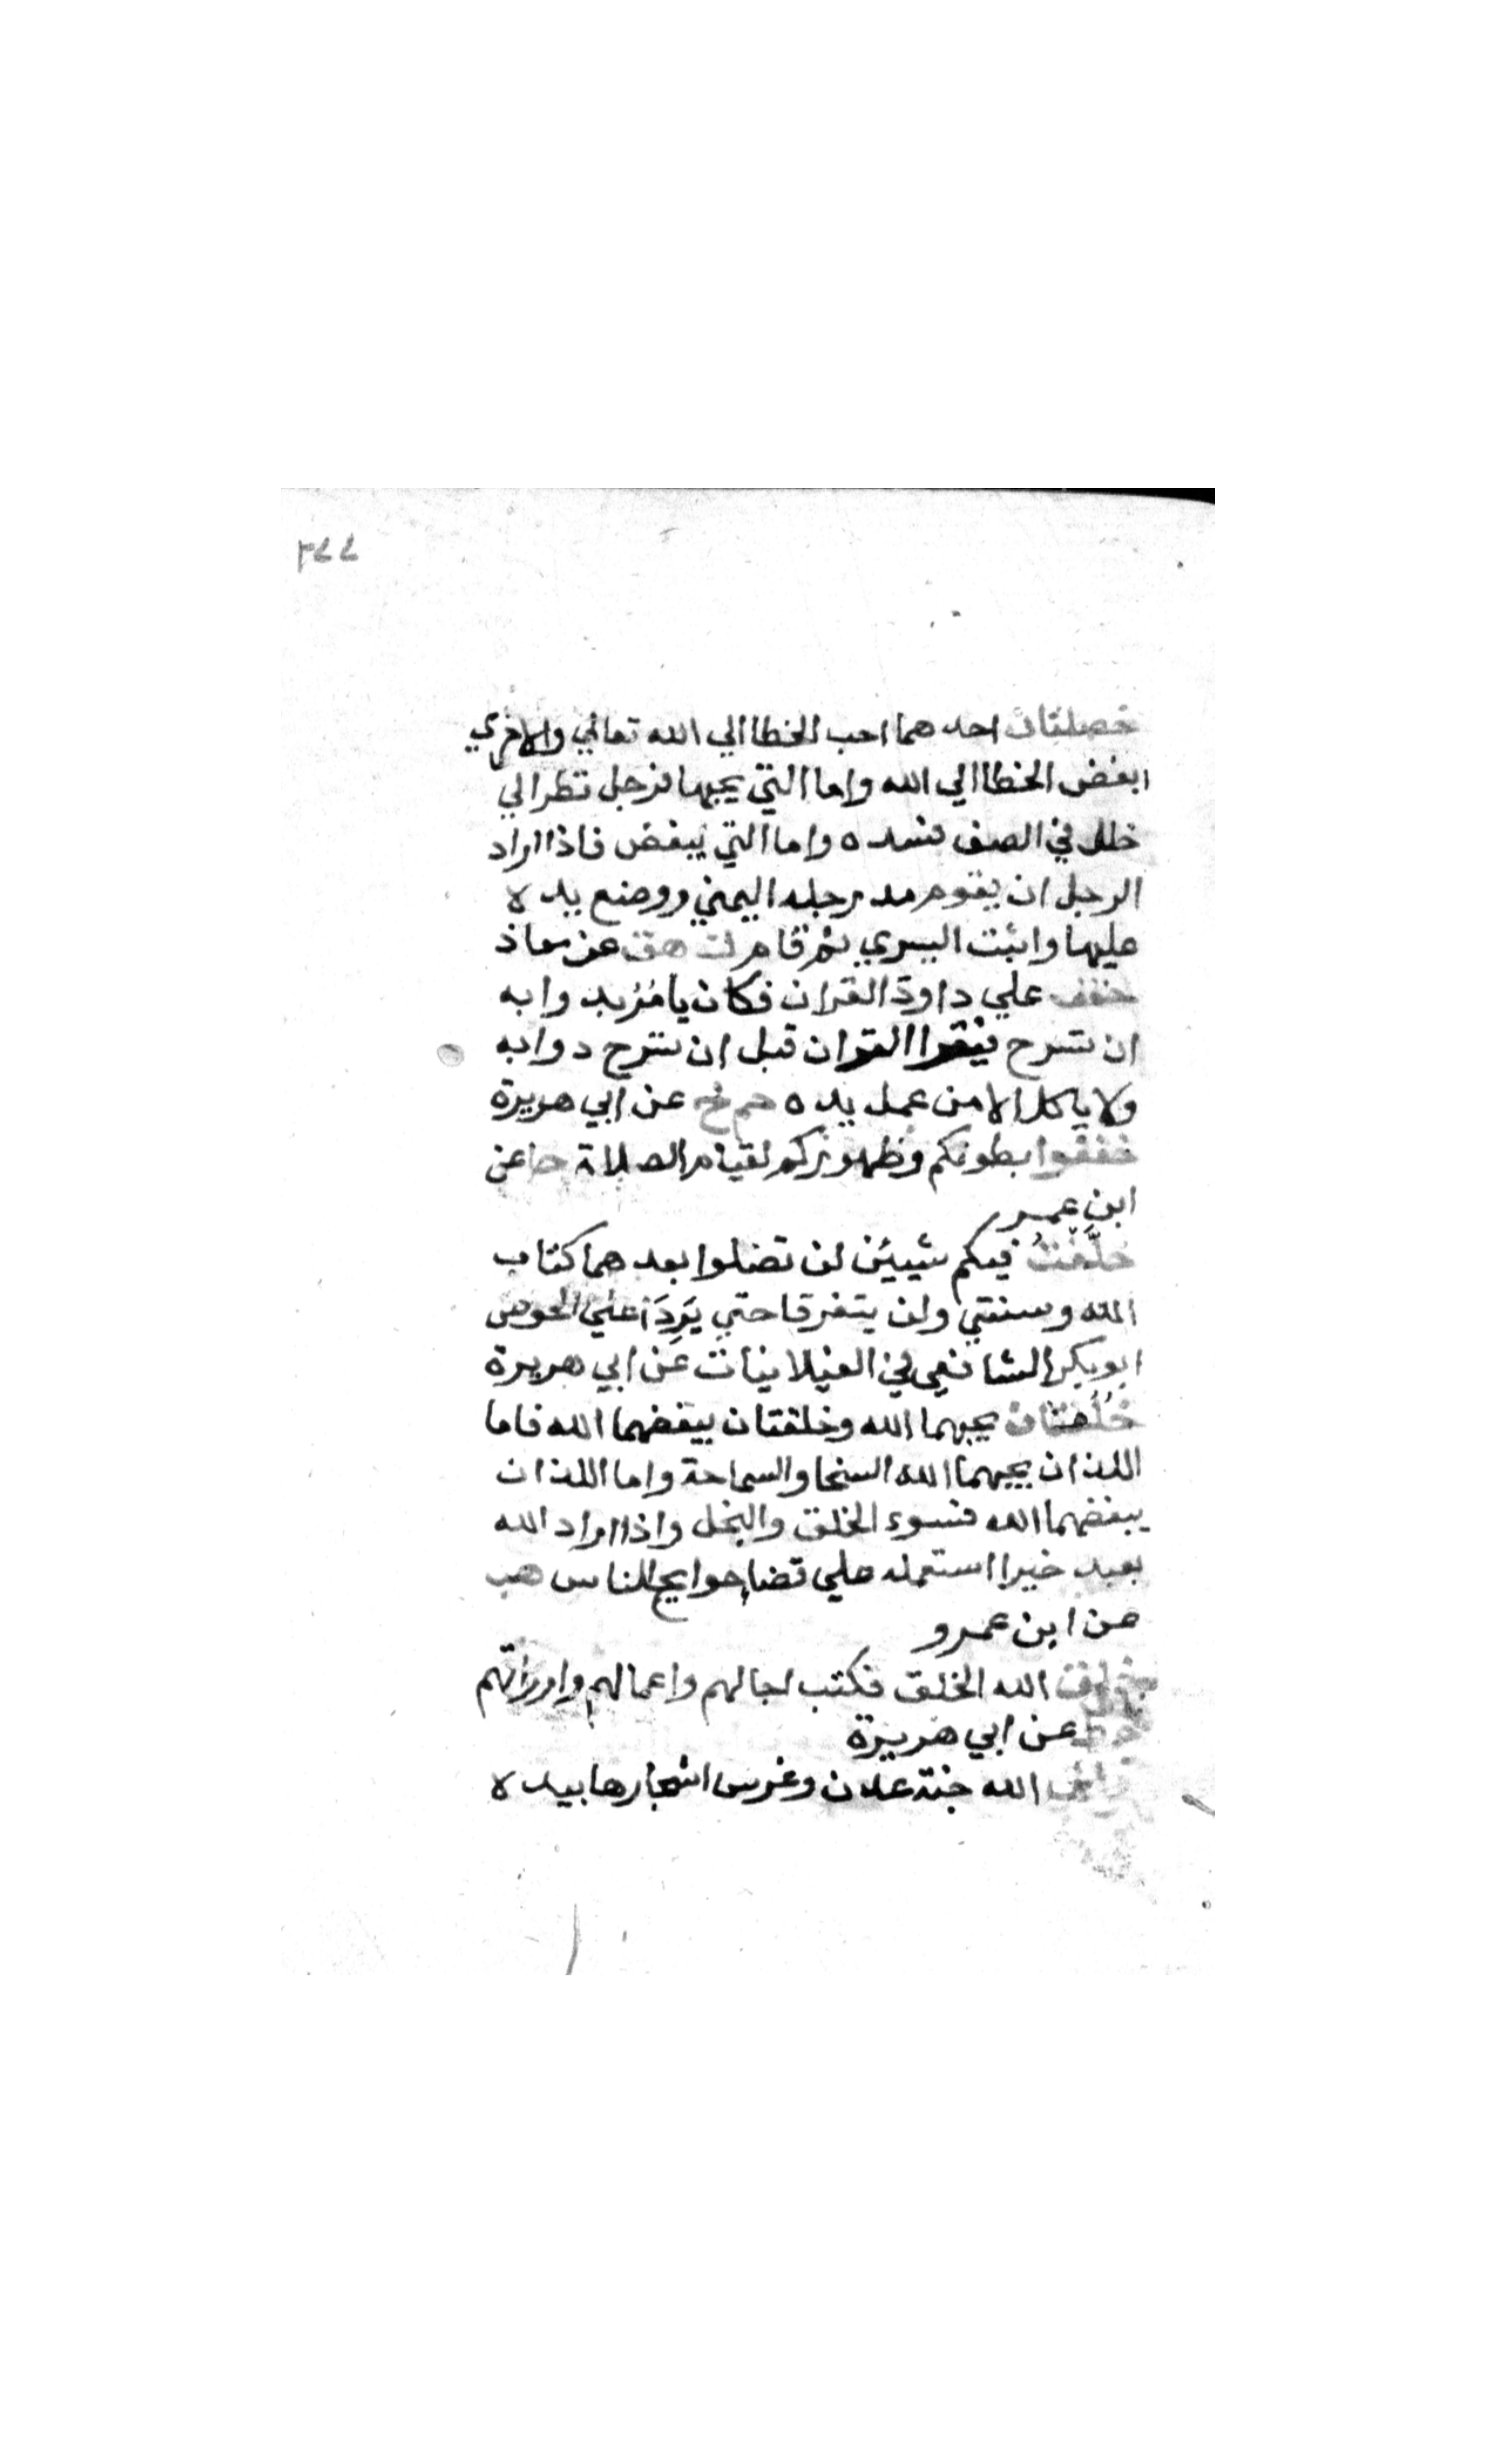 ٢٧٧
خصلتان احدهما احب الخطا الي الله تعالي والاخري
ابغض الخطا الي الله واما التي يحبها فرجل نظر الي
خلل في الصف فسده واما التي يبغض فاذا اراد
الرجل ان يقوم مد رجله اليمني ووضع يده
عليها واثبت اليسري ثم قام ك هق عن معاذ
خفف علي داود القران فكان يامر بدوابه
ان تسرح فيقرا القران قبل ان تسرح دوابه
ولا ياكل الا من عمل يده حم خ عن ابي هريرة
خففوا بطونكم وظهوركم لقيام الصلاة حل عن
ابن عمر
خَلَّفْتُ فيكم شيئين لن تضلوا بعدهما كتاب
الله وسنتي ولن يتفرقا حتي يَرِدَا علي الحوض
ابو بكر الشافعي في الغيلانيات عن ابي هريرة
خُلُقتان يحبهما الله وخلقتان يبغضهما الله فاما
اللذان يحبهما الله السخا والسماحة واما اللذان
يبغضهما الله فسوء الخلق والبخل واذا اراد الله
بعبد خيرا استعمله علي قضا حوايج الناس هب
عن ابن عمرو
خلق الله الخلق فكتب اجالهم واعمالهم وارزاقهم
خط عن ابي هريرة
خلق الله جنة عدن وغرس اشجارها بيده